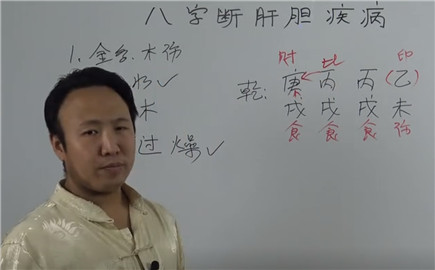 八字断肝胆疾病
1.金多.木伤
✓
木
过燥✓
财 比 印
乾: 庚 丙 丙 (乙)
戌 戌 戌 未
食 食 食 伤